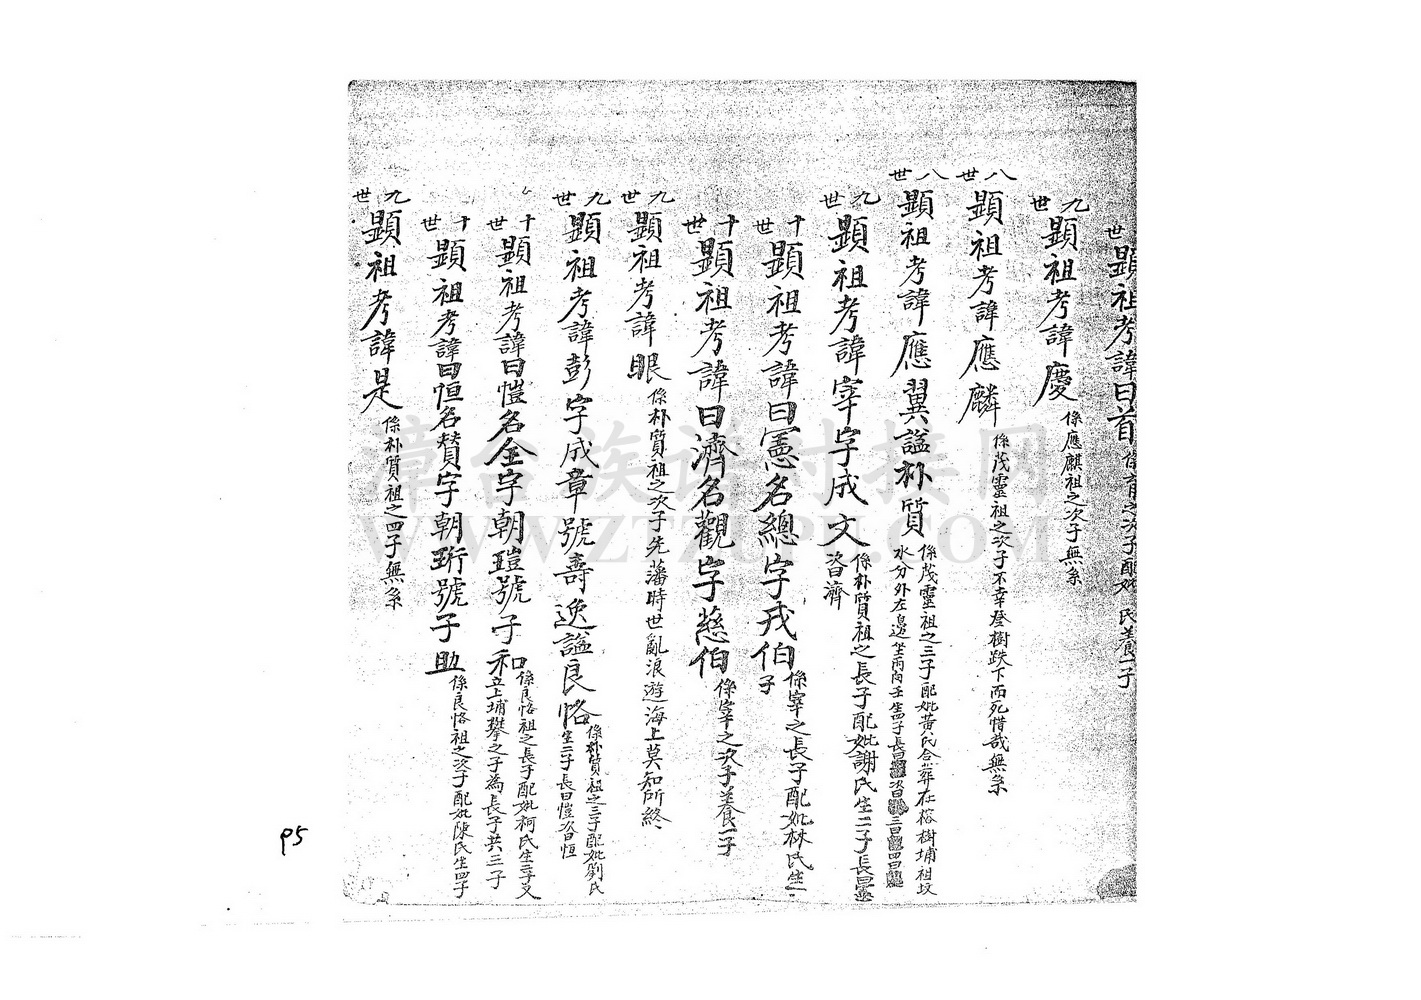 世
顕祖考諱曰首
係育之次子配妣 氏養一子
九世
顕祖考諱慶
係應麒祖之次子無系
八世
顕祖考諱應麟
係茂靈祖之次子不幸登樹跌下而死惜哉無系
八世
顕祖考諱應翼謚朴質
係茂靈祖之三子配妣黃氏合葬在榕樹埔祖坟
水分外左邊坐丙向壬生四子長曰 次曰 三曰 四曰
九世
顕祖考諱宰字成文
係朴質祖之長子配妣謝氏生二子長曰憲
次曰濟
十世
顕祖考諱曰憲名總字戎伯
係宰之長子配妣林氏生一
子
十世
顕祖考諱曰濟名觀字慈伯
係宰之次子養一子
九世
顕祖考諱眼
係朴質祖之次子先藩時世亂浪遊海上莫知所終
九世
顕祖考諱彭字成章號壽逸謚良恪
係朴質祖之三子配妣劉氏
生二子長曰愷次曰恒
十世
顕祖考諱曰愷名全字朝瑄號子和
係良恪祖之長子配妣柯氏生二子又
立上埔攀之子為長子共三子
十世
顕祖考諱曰恒名贊字朝珩號子助
係良恪祖之次子配妣陳氏生四子
九世
顕祖考諱是
係朴質祖之四子無系
P5
漳台族谱对接网
WWW.ZTZUPU.COM